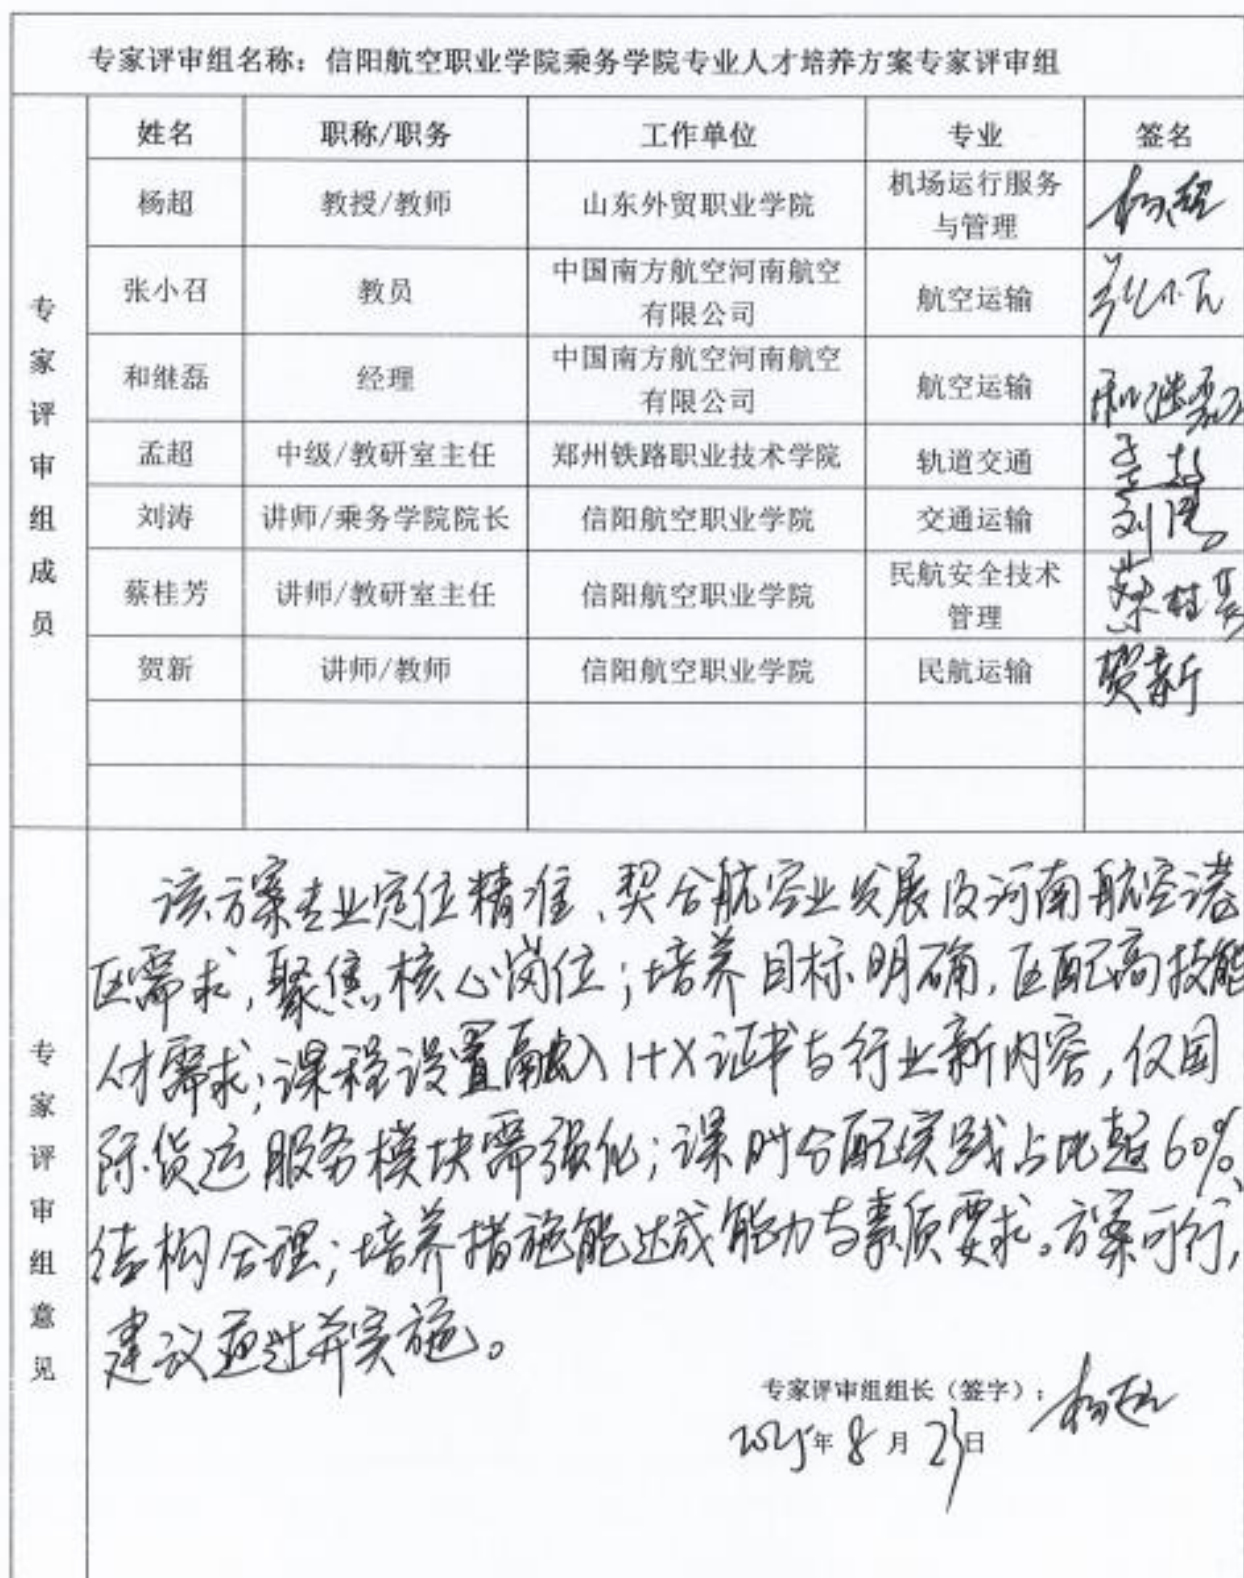 专家评审组名称：信阳航空职业学院乘务学院专业人才培养方案专家评审组
专家评审组成员
姓名 职称/职务 工作单位 专业 签名
杨超 教授/教师 山东外贸职业学院 机场运行服务与管理 杨超
张小召 教员 中国南方航空河南航空有限公司 航空运输
和继磊 经理 中国南方航空河南航空有限公司 航空运输 和继磊
孟超 中级/教研室主任 郑州铁路职业技术学院 轨道交通 孟超
刘涛 讲师/乘务学院院长 信阳航空职业学院 交通运输 刘涛
蔡桂芳 讲师/教研室主任 信阳航空职业学院 民航安全技术管理 蔡桂芳
贺新 讲师/教师 信阳航空职业学院 民航运输 贺新
专家评审组意见
该方案专业定位精准、契合航空业发展及河南航空港
区需求，聚焦核心岗位；培养目标明确，匹配高技能
人才需求；课程设置融入1+X证书与行业新内容，仅国
际货运服务模块需强化；课时分配实践占比超60%、
结构合理；培养措施能达成能力与素质要求。方案可行，
建议通过并实施。
专家评审组组长（签字）：杨超
2025年8月23日